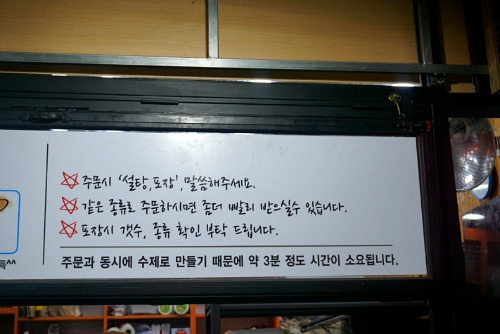 ☆ 주문시 '설탕,포장', 말씀해주세요.
☆ 같은 종류로 주문하시면 좀더 빨리 받으실수 있습니다.
☆ 포장시 갯수, 종류 확인 부탁 드립니다.
주문과 동시에 수제로 만들기 때문에 약 3분 정도 시간이 소요됩니다.